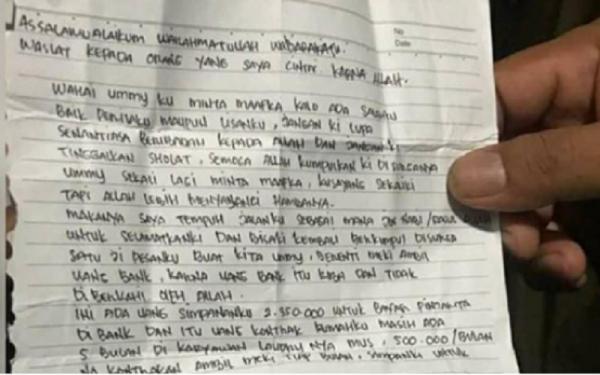 No
Date
ASSALAMUALAIKUM WARAHMATULLAH WABARAKATU.
WASIAT KEPADA ORANG YANG SAYA CINTAI KARNA ALLAH.
WAHAI UMMY KU MINTA MAAFKA KALO ADA SALAH
BAIK PERILAKU MAUPUN LISANKU, JANGAN KI LUPA
SENANTIASA BERIBADAH KEPADA ALLAH DAN JANGAN KI
TINGGALKAN SHOLAT, SEMOGA ALLAH KUMPULKAN KI DI SURGANYA
UMMY SEKALI LAGI MINTA MAAFKA, KUSAYANG SEKALIKI
TAPI ALLAH LEBIH MENYAYANGI HAMBANYA.
MAKANYA SAYA TEMPUH JALANKU SEBAGAI MANA JALAN
UNTUK SELAMATKANKI DAN BISAKI KEMBALI BERKUMPUL DISURGA
SATU JI PESANKU BUAT KITA UMMY, BERENTI MEKI AMBIL
UANG BANK, KARNA UANG BANK ITU RIBA DAN TIDAK
DI BERKAHI OLEH ALLAH.
INI ADA UANG SIMPANANKU 2.350.000 UNTUK BAYAR PINJAMTA
DI BANK DAN ITU UANG KONTRAK RUMAHKU MASIH ADA
5 BULAN DI KARYAWAN LAUNDRYNYA MUS, 500.000/BULAN
KONTRAKAN AMBIL MEKI TIAP BULAN, SIMPANKI UNTUK